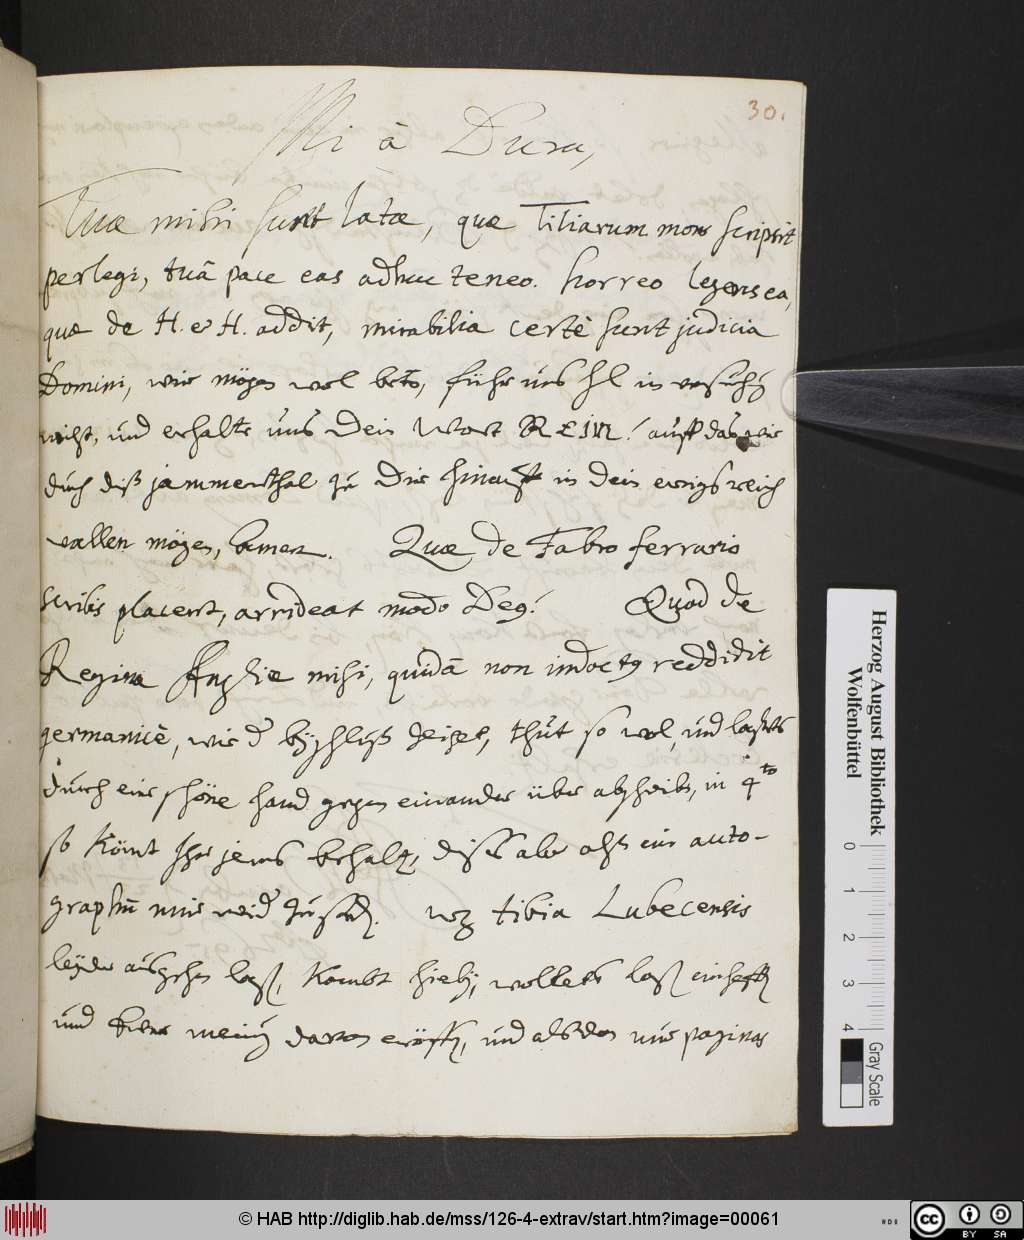 30.
Mi à Dura,
Tuæ mihi sunt latæ, quæ Tiliarum mons scripsit
perlegi, tuâ pace eas adhuc teneo. horreo legens ea,
quæ de H. et H. addit, mirabilia certè sunt judicia
Domini, wir mögen wol , führ uns Hl in versuchg
nicht, und erhalte uns Dein Wort REIN! auff das wir
durch diß jammerthal zu Dir hinauff in dein ewigs reich
wallen mögen, Amen. Quæ de Fabro ferrario
scribis placent, arrideat modo Deq! Quod de
Regina Angliæ misi, quidā non indoctq reddidit
germanicè, wie d , thut so wol, und laßets
durch eine schöne hand gegen einander über abschreib, in 4to
so kömt Ihr jenes behalt, dises aber alß ein auto-
graphū mir wid zusend. wz tibia Lubecensis
leyder ausgehen laß, kombt hieby, wollets laß einhefft
und meing davon eröffn, und alsdan nur paginas
Herzog August Bibliothek
Wolfenbüttel
0 1 2 3 4
Gray Scale
© HAB http://diglib.hab.de/mss/126-4-extrav/start.htm?image=00061
cc BY SA